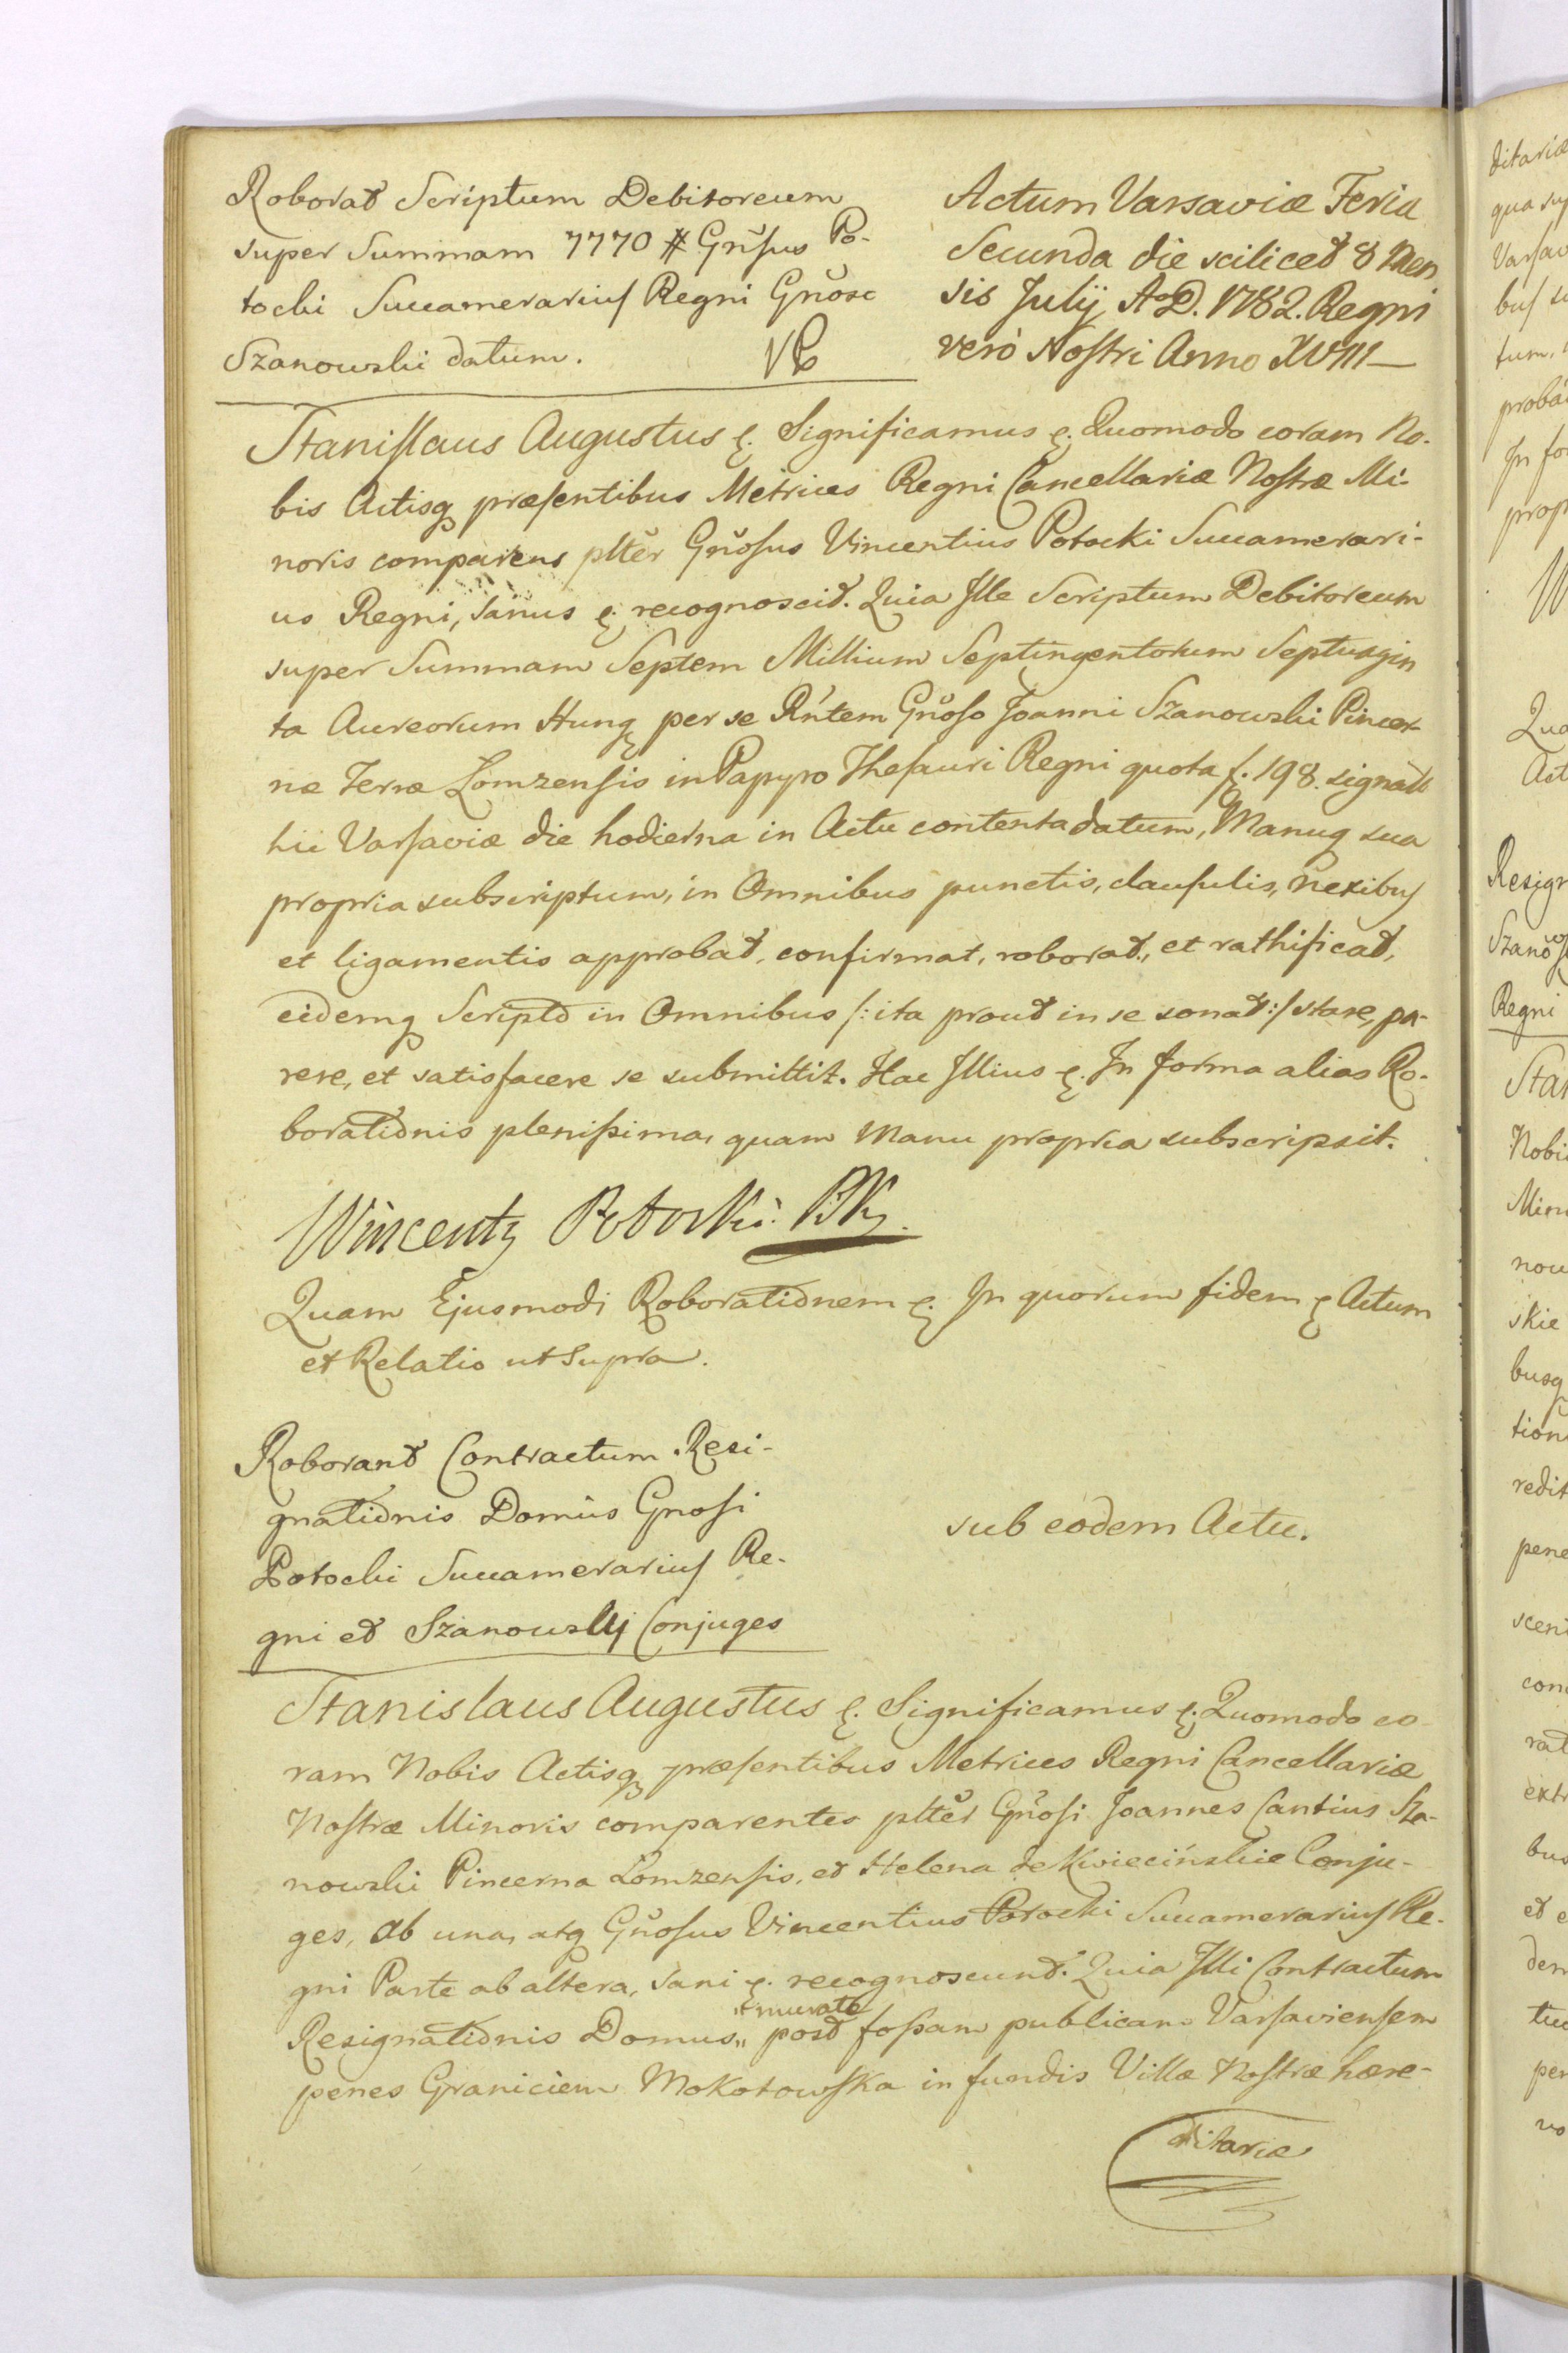 Roborat Scriptum Debitoreum
super Summam 7770 # Gnosus Po-
tocki Succamerarius Regni Gnoso
Szanowski datum.
Actum Varsaviæ Feria
Secunda die scilicet 8 Men
sis Julij A°D. 1782. Regni
verò Nostri Anno XVIII—
Stanislaus Augustus &. Significamus &. Quomodo coram No-
bis Actisq præsentibus Metrices Regni Cancellariæ Nostræ Mi-
noris comparens pltěr Gnosus Vincentius Potocki Succamerari-
us Regni, sanus &. recognoscit. Quia Ille Scriptum Debitoreum
super Summam Septem Millium Septingentorum Septuagin
ta Aureorum Hung per se Rn'tem Gnoso Joanni Szanowski Pincer-
næ Terræ Lomzensis in Papyro Thesauri Regni quota f. 198. signato
hic Varsaviæ die hodierna in Actu contenta datum, Manuq sua
propria subscriptum, in Omnibus punctis, clausulis, nexibus
et ligamentis approbat, confirmat, roborat, et rathificat,
eidemq Scripto in Omnibus /: ita prout in se sonat :/ stare, pa-
rere, et satisfacere se submittit. Hac Illius &. In forma alias Ro-
borationis plenissima, quam Manu propria subscripsit.
Wincenty Potocki. PK.
Quam Ejusmodi Roborationem &. In quorum fidem & Actum
et Relatio ut Supra.
Roborant Contractum Resi-
gnationis Domûs Gnosi
Potocki Succamerarius Re-
gni et Szanowskij Conjuges
sub eodem Actu.
Stanislaus Augustus &. Significamus &. Quomodo co-
ram Nobis Actisq præsentibus Metrices Regni Cancellariæ
Nostræ Minoris comparentes pltěr Gnosi Joannes Cantius Sza-
nowski Pincerna Lomzensis, et Helena de Kwiecińskie Conju-
ges, ab una, atq Gnosus Vincentius Potocki Succamerarius Re-
gni Parte ab altera, sani &. recognoscunt. Quia Illi Contractum
Resignationis Domus „ post fossam publicam Varsaviensem
penes Graniciem Mokotowska in fundis Villæ Nostræ hære-
ditariæ